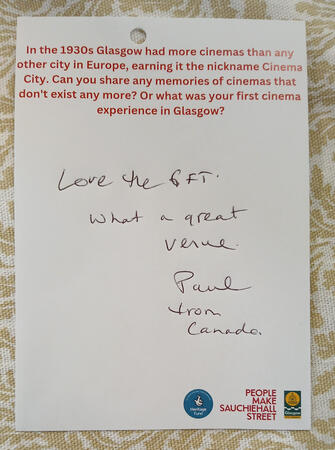 In the 1930s Glasgow had more cinemas than any
other city in Europe, earning it the nickname Cinema
City. Can you share any memories of cinemas that
don't exist any more? Or what was your first cinema
experience in Glasgow?
Love the GFT.
What a great
venue.
Paul
from
Canada.
Heritage
Fund
PEOPLE
MAKE
SAUCHIEHALL
STREET
Glasgow